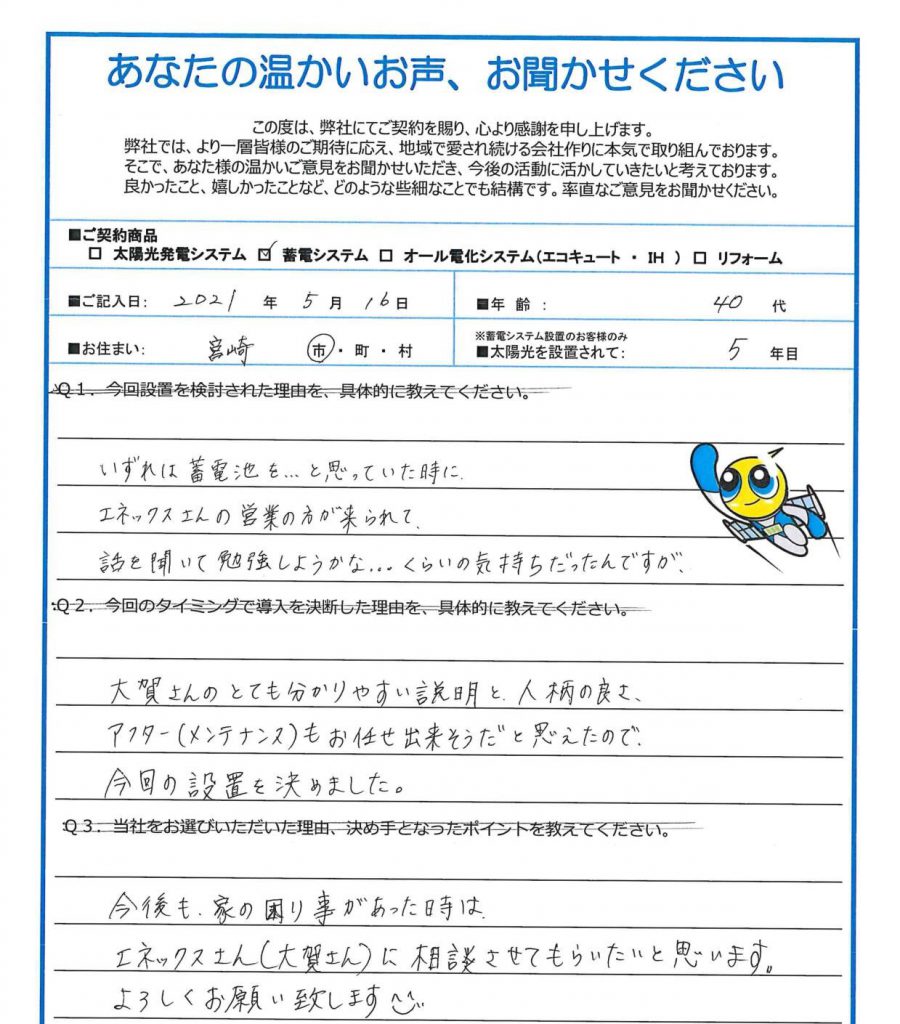 あなたの温かいお声、お聞かせください
この度は、弊社にてご契約を賜り、心より感謝を申し上げます。
弊社では、より一層皆様のご期待に応え、地域で愛され続ける会社作りに本気で取り組んでおります。
そこで、あなた様の温かいご意見をお聞かせいただき、今後の活動に活かしていきたいと考えております。
良かったこと、嬉しかったことなど、どのような些細なことでも結構です。率直なご意見をお聞かせください。
■ご契約商品
□ 太陽光発電システム ☑ 蓄電システム □ オール電化システム(エコキュート ・ IH ) □ リフォーム
■ご記入日: 2021 年 5 月 16 日 ■年 齢 : 40 代
■お住まい: 宮崎 市・町・村 ※蓄電システム設置のお客様のみ
■太陽光を設置されて: 5 年目
Q1.今回設置を検討された理由を、具体的に教えてください。
いずれは蓄電池を…と思っていた時に、
エネックスさんの営業の方が来られて、
話を聞いて勉強しようかな…くらいの気持ちだったんですが、
Q2.今回のタイミングで導入を決断した理由を、具体的に教えてください。
大賀さんのとても分かりやすい説明と、人柄の良さ、
アフター(メンテナンス)もお任せ出来そうだと思えたので、
今回の設置を決めました。
Q3.当社をお選びいただいた理由、決め手となったポイントを教えてください。
今後も、家の困り事があった時は、
エネックスさん(大賀さん)に相談させてもらいたいと思います。
よろしくお願い致します